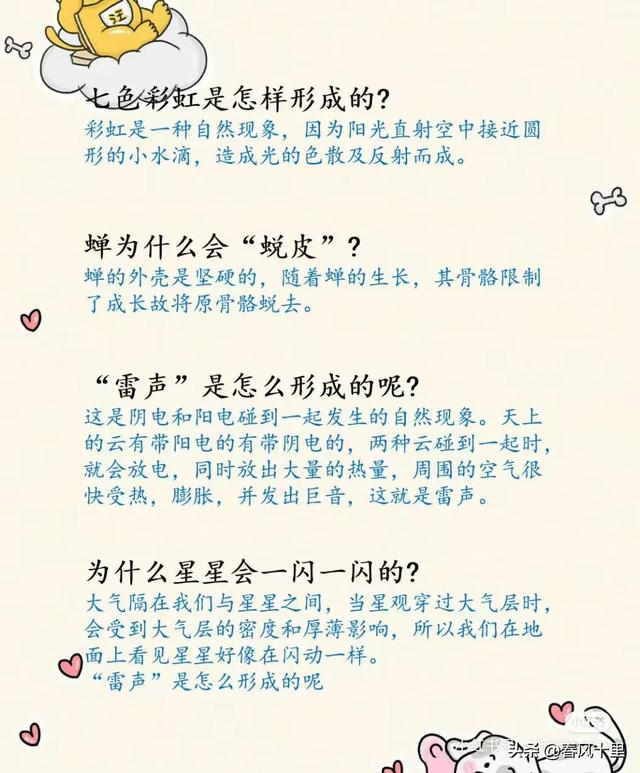 汪
七色彩虹是怎样形成的?
彩虹是一种自然现象，因为阳光直射空中接近圆
形的小水滴，造成光的色散及反射而成。
蝉为什么会“蜕皮”?
蝉的外壳是坚硬的，随着蝉的生长，其骨骼限制
了成长故将原骨骼蜕去。
“雷声”是怎么形成的呢?
这是阴电和阳电碰到一起发生的自然现象。天上
的云有带阳电的有带阴电的，两种云碰到一起时，
就会放电，同时放出大量的热量，周围的空气很
快受热，膨胀，并发出巨音，这就是雷声。
为什么星星会一闪一闪的?
大气隔在我们与星星之间，当星观穿过大气层时，
会受到大气层的密度和厚薄影响，所以我们在地
面上看见星星好像在闪动一样。
“雷声”是怎么形成的呢
小红书
头条@春风十里